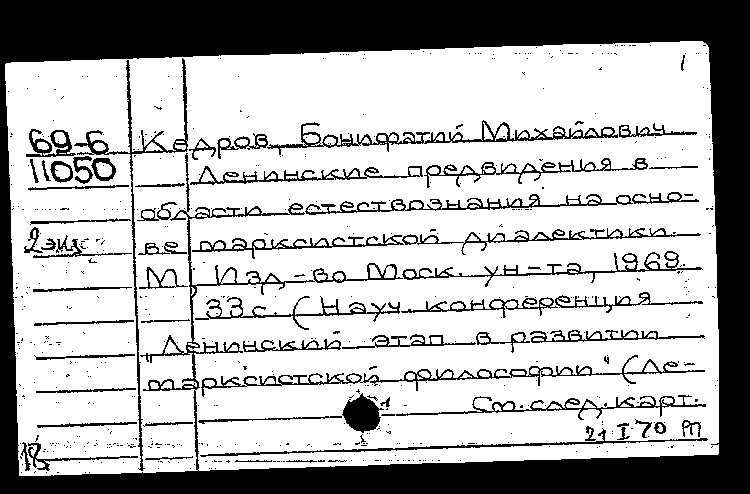 1
69-6 Кедров, Бонифатий Михайлович
11050 Ленинские предвидения в
области естествознания на осно-
2 экз. ве марксистской диалектики.
М., Изд-во Моск. ун-та, 1969.
33 с. (Науч. конференция
„Ленинский этап в развитии
марксистской философии" (Ле-
См. след. карт.
21 I 70
18